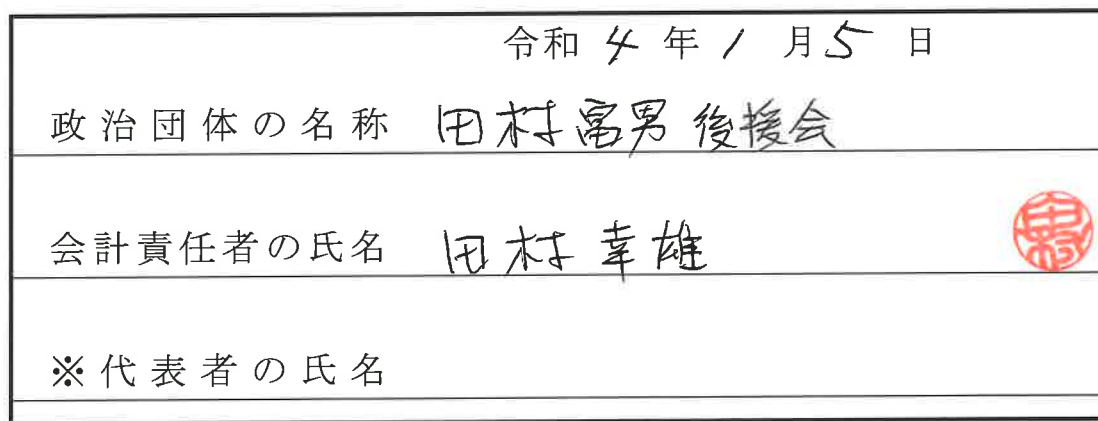 令和 4 年 1 月 5 日
政治団体の名称 田村富男後援会
会計責任者の氏名 田村幸雄
田村
※代表者の氏名